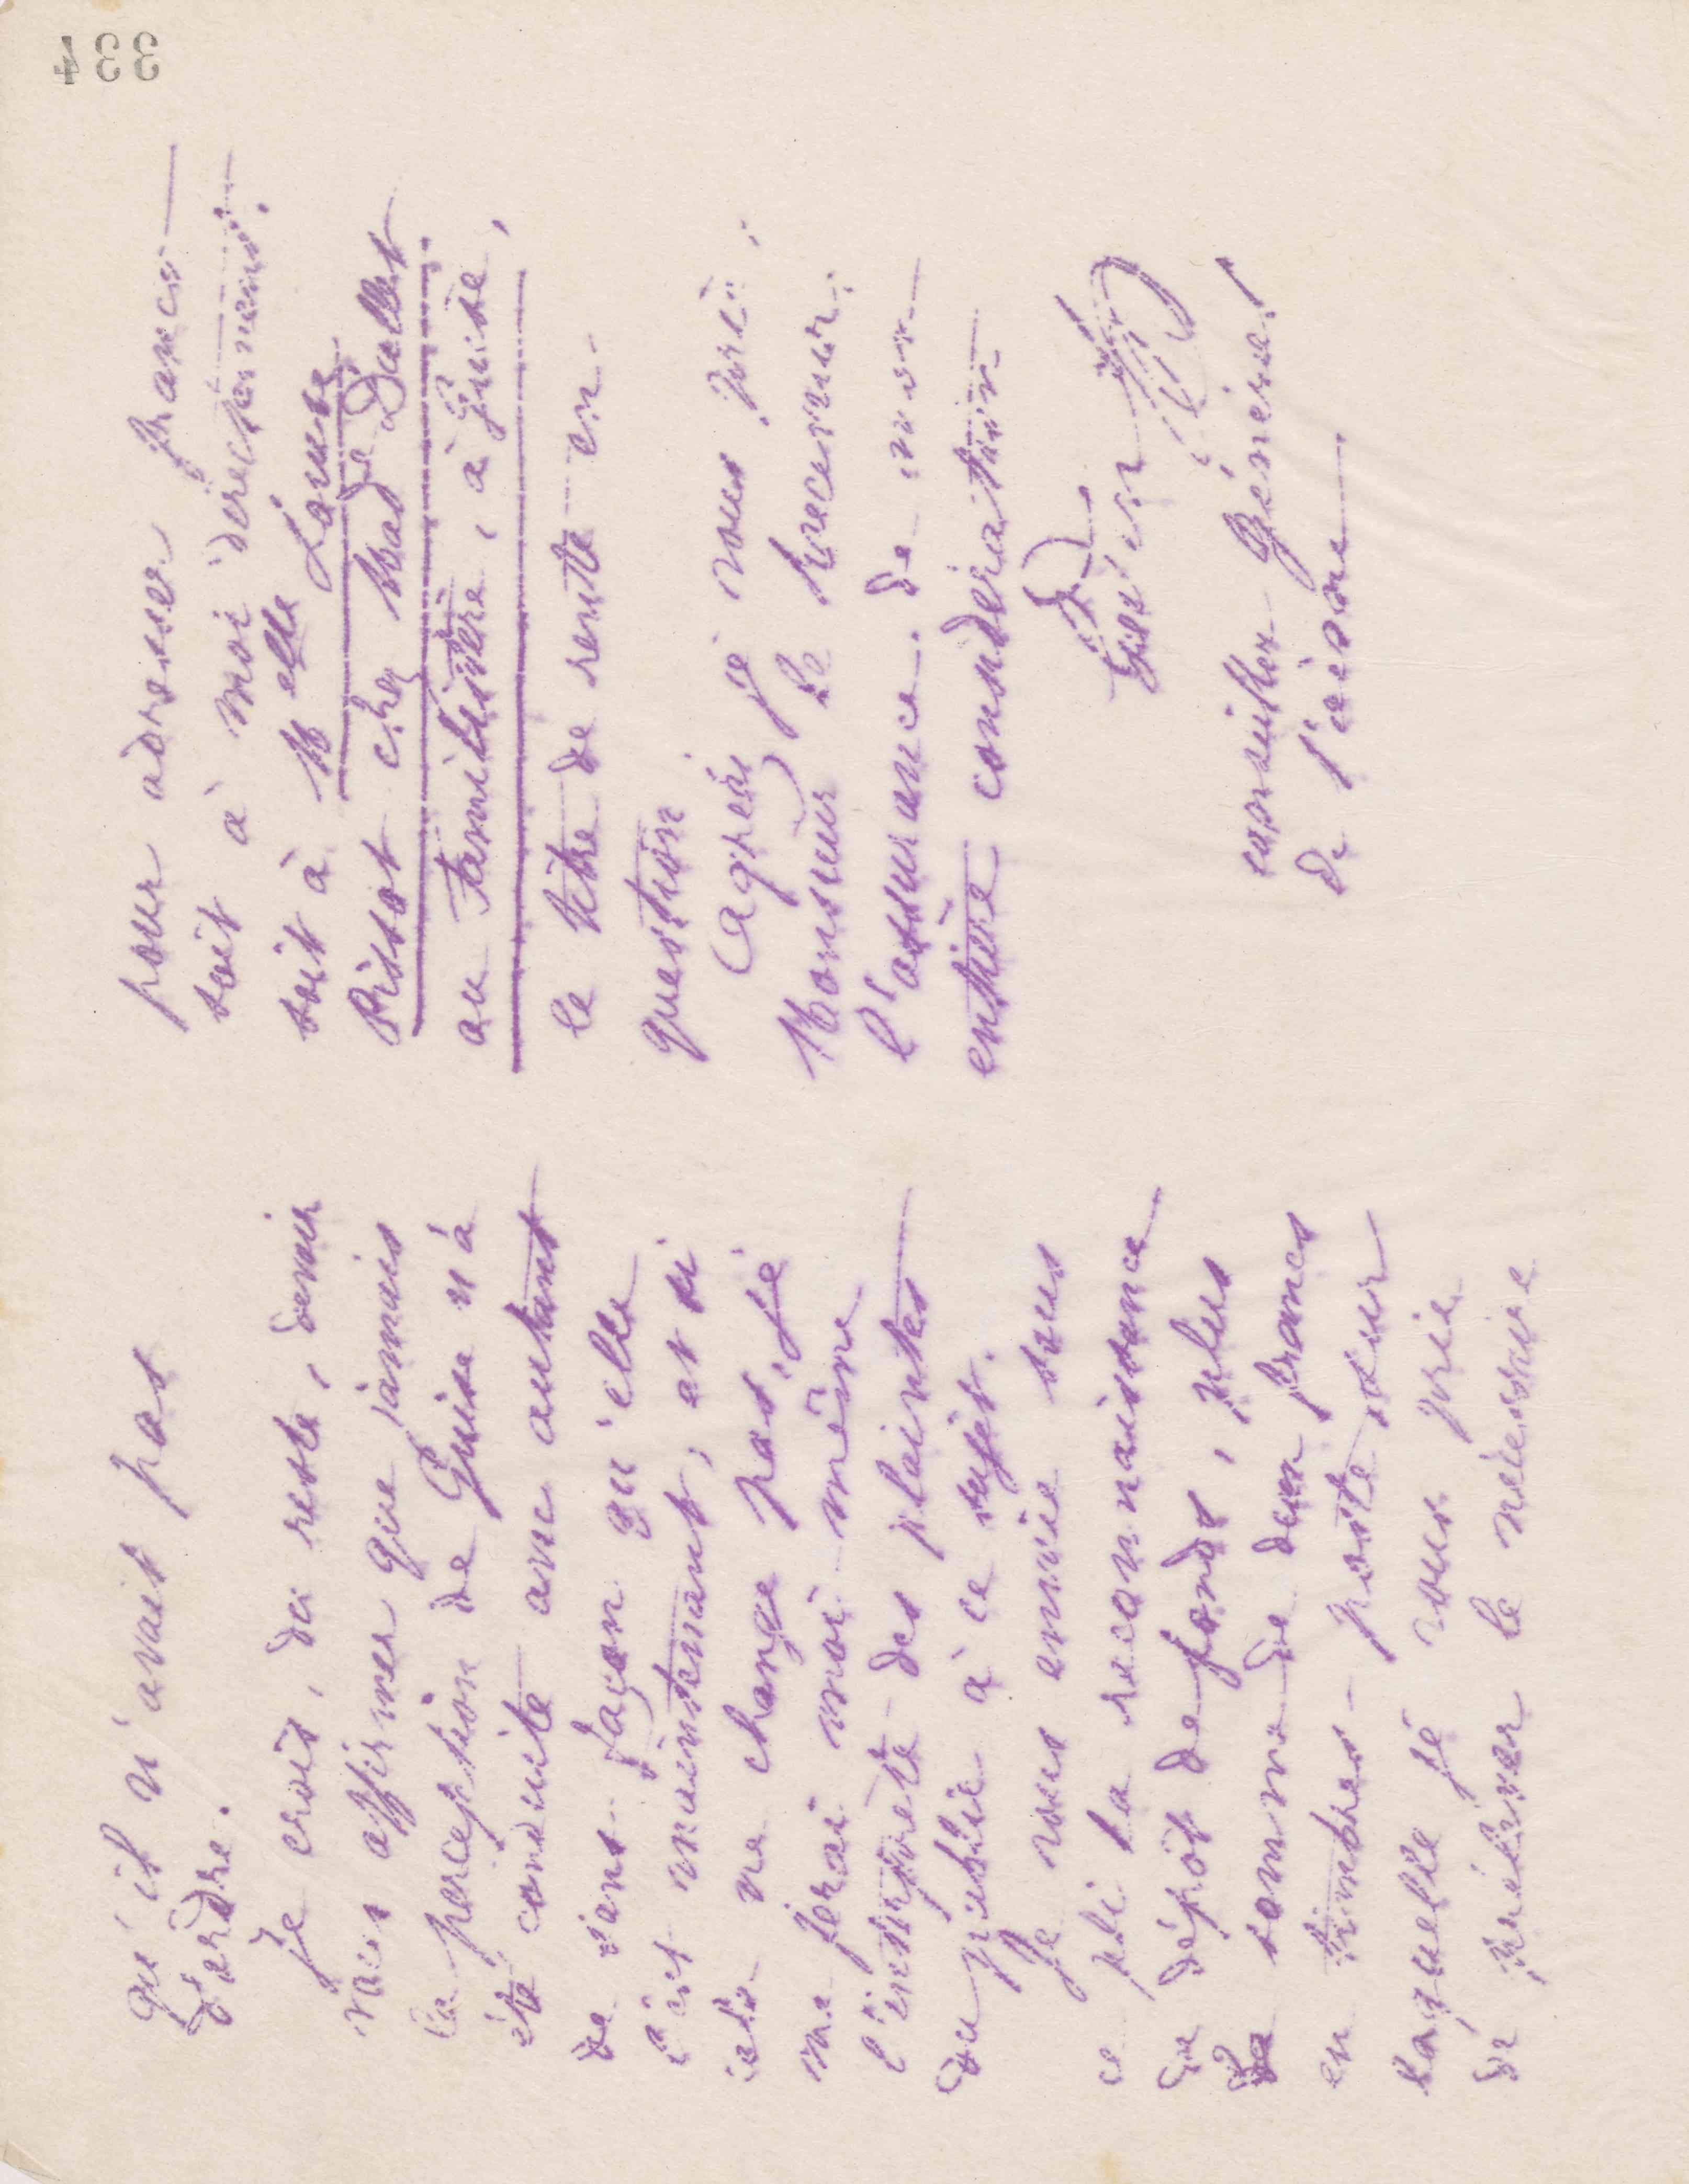 334
qu'il n'avait pas
d'ordre.
Je crois, du reste, devoir
vous affirmer que jamais
la perception de Guise n'a
été conduite avec autant
de sans-façon qu'elle
l'est maintenant, et si
cela ne change pas, je
me ferai moi-même
l'interprète des plaintes
du public à ce sujet.
Je vous envoie sous
ce pli la reconnaissance
du dépôt de fonds, plus
la somme de deux francs
en timbres-poste sur
laquelle je vous prie
de prélever le nécessaire
pour adresser franco
soit à moi directement.
soit à Melle Louise
Pissot chez Made Dallet
au Familistère, à Guise,
le titre de rente en
question
Agréez je vous prie,
Monsieur le Receveur,
l'assurance de mon
entière considération
Godin
conseiller Général
de l'aisne